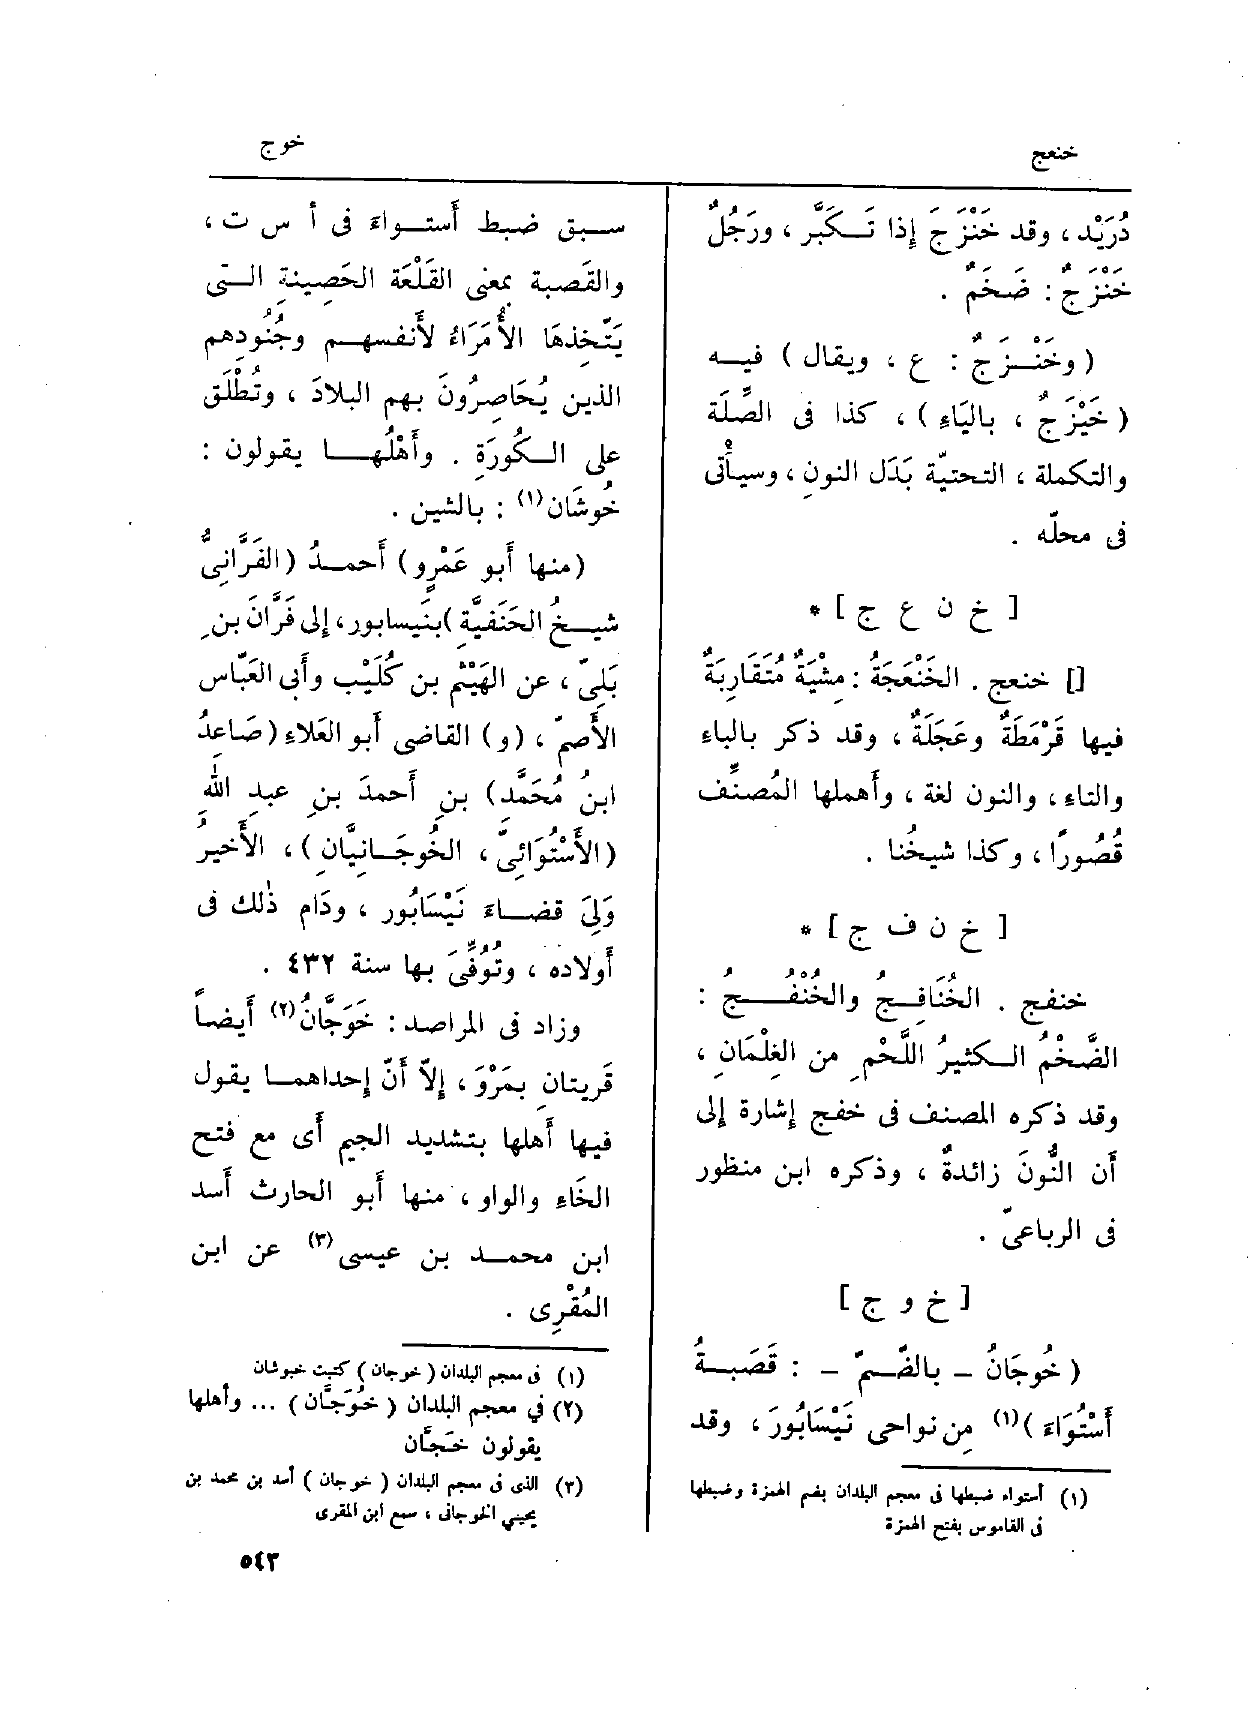 خنعج
خوج
دُرَيْد ، وقد خَنْزَجَ إذا تَكَبَّر ، ورَجُلٌ
خَنْزَجٌ : ضَخْمٌ .
( وخَنْزَجٌ : ع ، ويقال ) فيه
( خَيْزَجٌ ، بالياء ) ، كذا فى الصِّلَة
والتكملة ، التحتيّة بَدَل النون ، وسيأْتى
فى محلّه .
[ خ ن ع ج ] *
[] خنعج . الخَنْعَجَةُ : مِشْيَةٌ مُتَقَارِبَةٌ
فيها قَرْمَطَةٌ وعَجَلَةٌ ، وقد ذكر بالباء
والتاء ، والنون لغة ، وأهملها المُصنِّف
قُصُورًا ، وكذا شيخُنا .
[ خ ن ف ج ] *
خنفج . الخُنَافِجُ والخُنْفُجُ :
الضَّخْمُ الكثيرُ اللَّحْمِ من الغِلْمَانِ ،
وقد ذكره المصنف فى خفج إشارة إلى
أن النُّونَ زائدةٌ ، وذكره ابن منظور
فى الرباعىّ .
[ خ و ج ]
( خُوجَانُ – بالضّمّ – : قَصَبةُ
أَسْتُوَاءَ ) (١) مِن نواحى نَيْسَابُورَ ، وقد
(١) أستواء ضبطها فى معجم البلدان بضم الهمزة وضبطها
فى القاموس بفتح الهمزة
سبق ضبط أَستواءَ فى أ س ت ،
والقَصبة بمعنى القَلْعَة الحَصِينةِ التى
يَتّخِذهَا الأُمَرَاءُ لأَنفسهم وجُنُودِهم
الذين يُحَاصِرُونَ بهم البلادَ ، وتُطْلَق
على الكُورَةِ . وأَهْلُها يقولون :
خُوشَان (١) : بالشين .
( منها أَبو عَمْرٍو ) أَحمدُ ( الفَرَّانِىُّ
شيخُ الحَنَفِيَّةِ ) بنَيسابور ، إلى فَرَّانَ بن
بَلِىّ ، عن الهَيْثم بن كُلَيْب وأَبى العَبّاس
الأَصمّ ، ( و ) القاضى أَبو العَلاءِ ( صَاعِدُ
ابنُ مُحَمَّد ) بنِ أَحمدَ بنِ عبدِ اللهِ
( الأَسْتُوَائِىُّ ، الخُوجَانِيَّانِ ) ، الأَخيرُ
وَلِىَ قضاءَ نَيْسَابُور ، ودَام ذٰلك فى
أَولاده ، وتُوُفِّىَ بها سنة ٤٣٢ .
وزاد فى المراصد : خَوَجَّانُ (٢) أَيضاً
قَريتانِ بمَرْوَ ، إلاّ أَنّ إحداهما يقول
فيها أَهلها بتشديد الجيم أَى مع فتح
الخاءِ والواو ، منها أَبو الحارث أَسد
ابن محمد بن عيسى (٣) عن ابن
المُقْرِى .
(١) فى معجم البلدان ( خوجان ) كتبت خبوشان
(٢) في معجم البلدان ( خُوَجَّان ) ... وأهلها
يقولون خَجَّان
(٣) الذى فى معجم البلدان ( خوجان ) أسد بن محمد بن
يحيي الخوجانى ، سمع ابن المقرى
٥٤٣